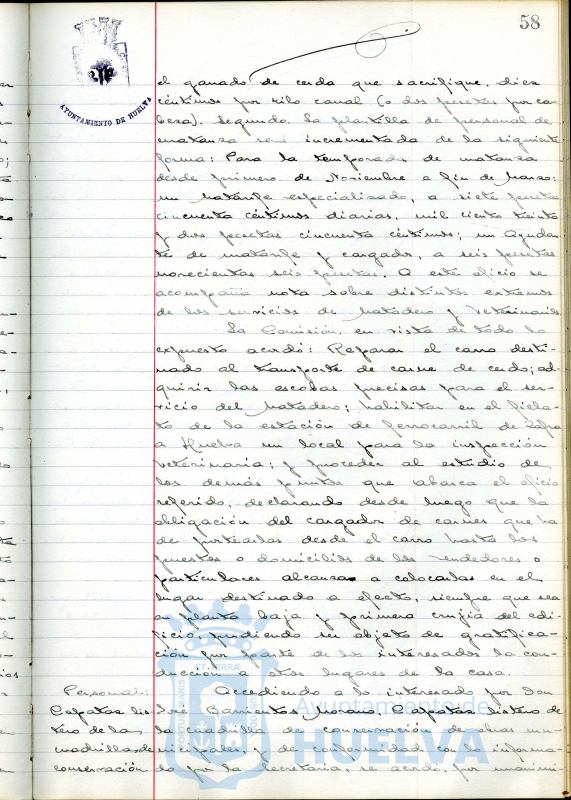 58
AYUNTAMIENTO DE HUELVA
el ganado de cerda que sacrifique, diez
céntimos por kilo canal (o dos pesetas por ca-
beza). Segundo. La plantilla de personal de
matanza será incrementada de la siguiente
forma: Para la temporada de matanza
desde primero de Noviembre a fin de Marzo:
un matarife especializado, a siete pesetas
cincuenta céntimos diarios, mil ciento treinta
y dos pesetas cincuenta céntimos; un Ayudan-
te de matarife y cargador, a seis pesetas
novecientas seis pesetas. A este oficio se
acompaña nota sobre distintos extremos
de los servicios de Matadero y Veterinarios
La Comisión, en vista de todo lo
expuesto acordó: Reparar el carro desti-
nado al transporte de carne de cerdo; ad-
quirir las escobas precisas para el ser-
vicio del Matadero; habilitar en el fiela-
to de la estación de ferrocarril de Zafra
a Huelva un local para la inspección
veterinaria; y proceder al estudio de
los demás puntos que abarca el oficio
referido, declarando desde luego que la
obligación del cargador de carnes que ha
de portearlas desde el carro hasta los
puestos o domicilios de los vendedores o
particulares alcanza a colocarlas en el
lugar destinado a efecto, siempre que sea
en planta baja y primera crujía del edi-
ficio, pudiendo ser objeto de gratifica-
ción por parte de los interesados la con-
ducción a otros lugares de la casa.
Personal: Accediendo a lo interesado por Don
Capataz lis- José Barrientos Moreno, Capataz listero de
tero de las la cuadrilla de conservación de obras mu-
cuadrillas de nicipales, y de conformidad con lo informa-
conservación do por la Secretaría, se acordó, por unanimi-
Ayuntamiento de
HUELVA